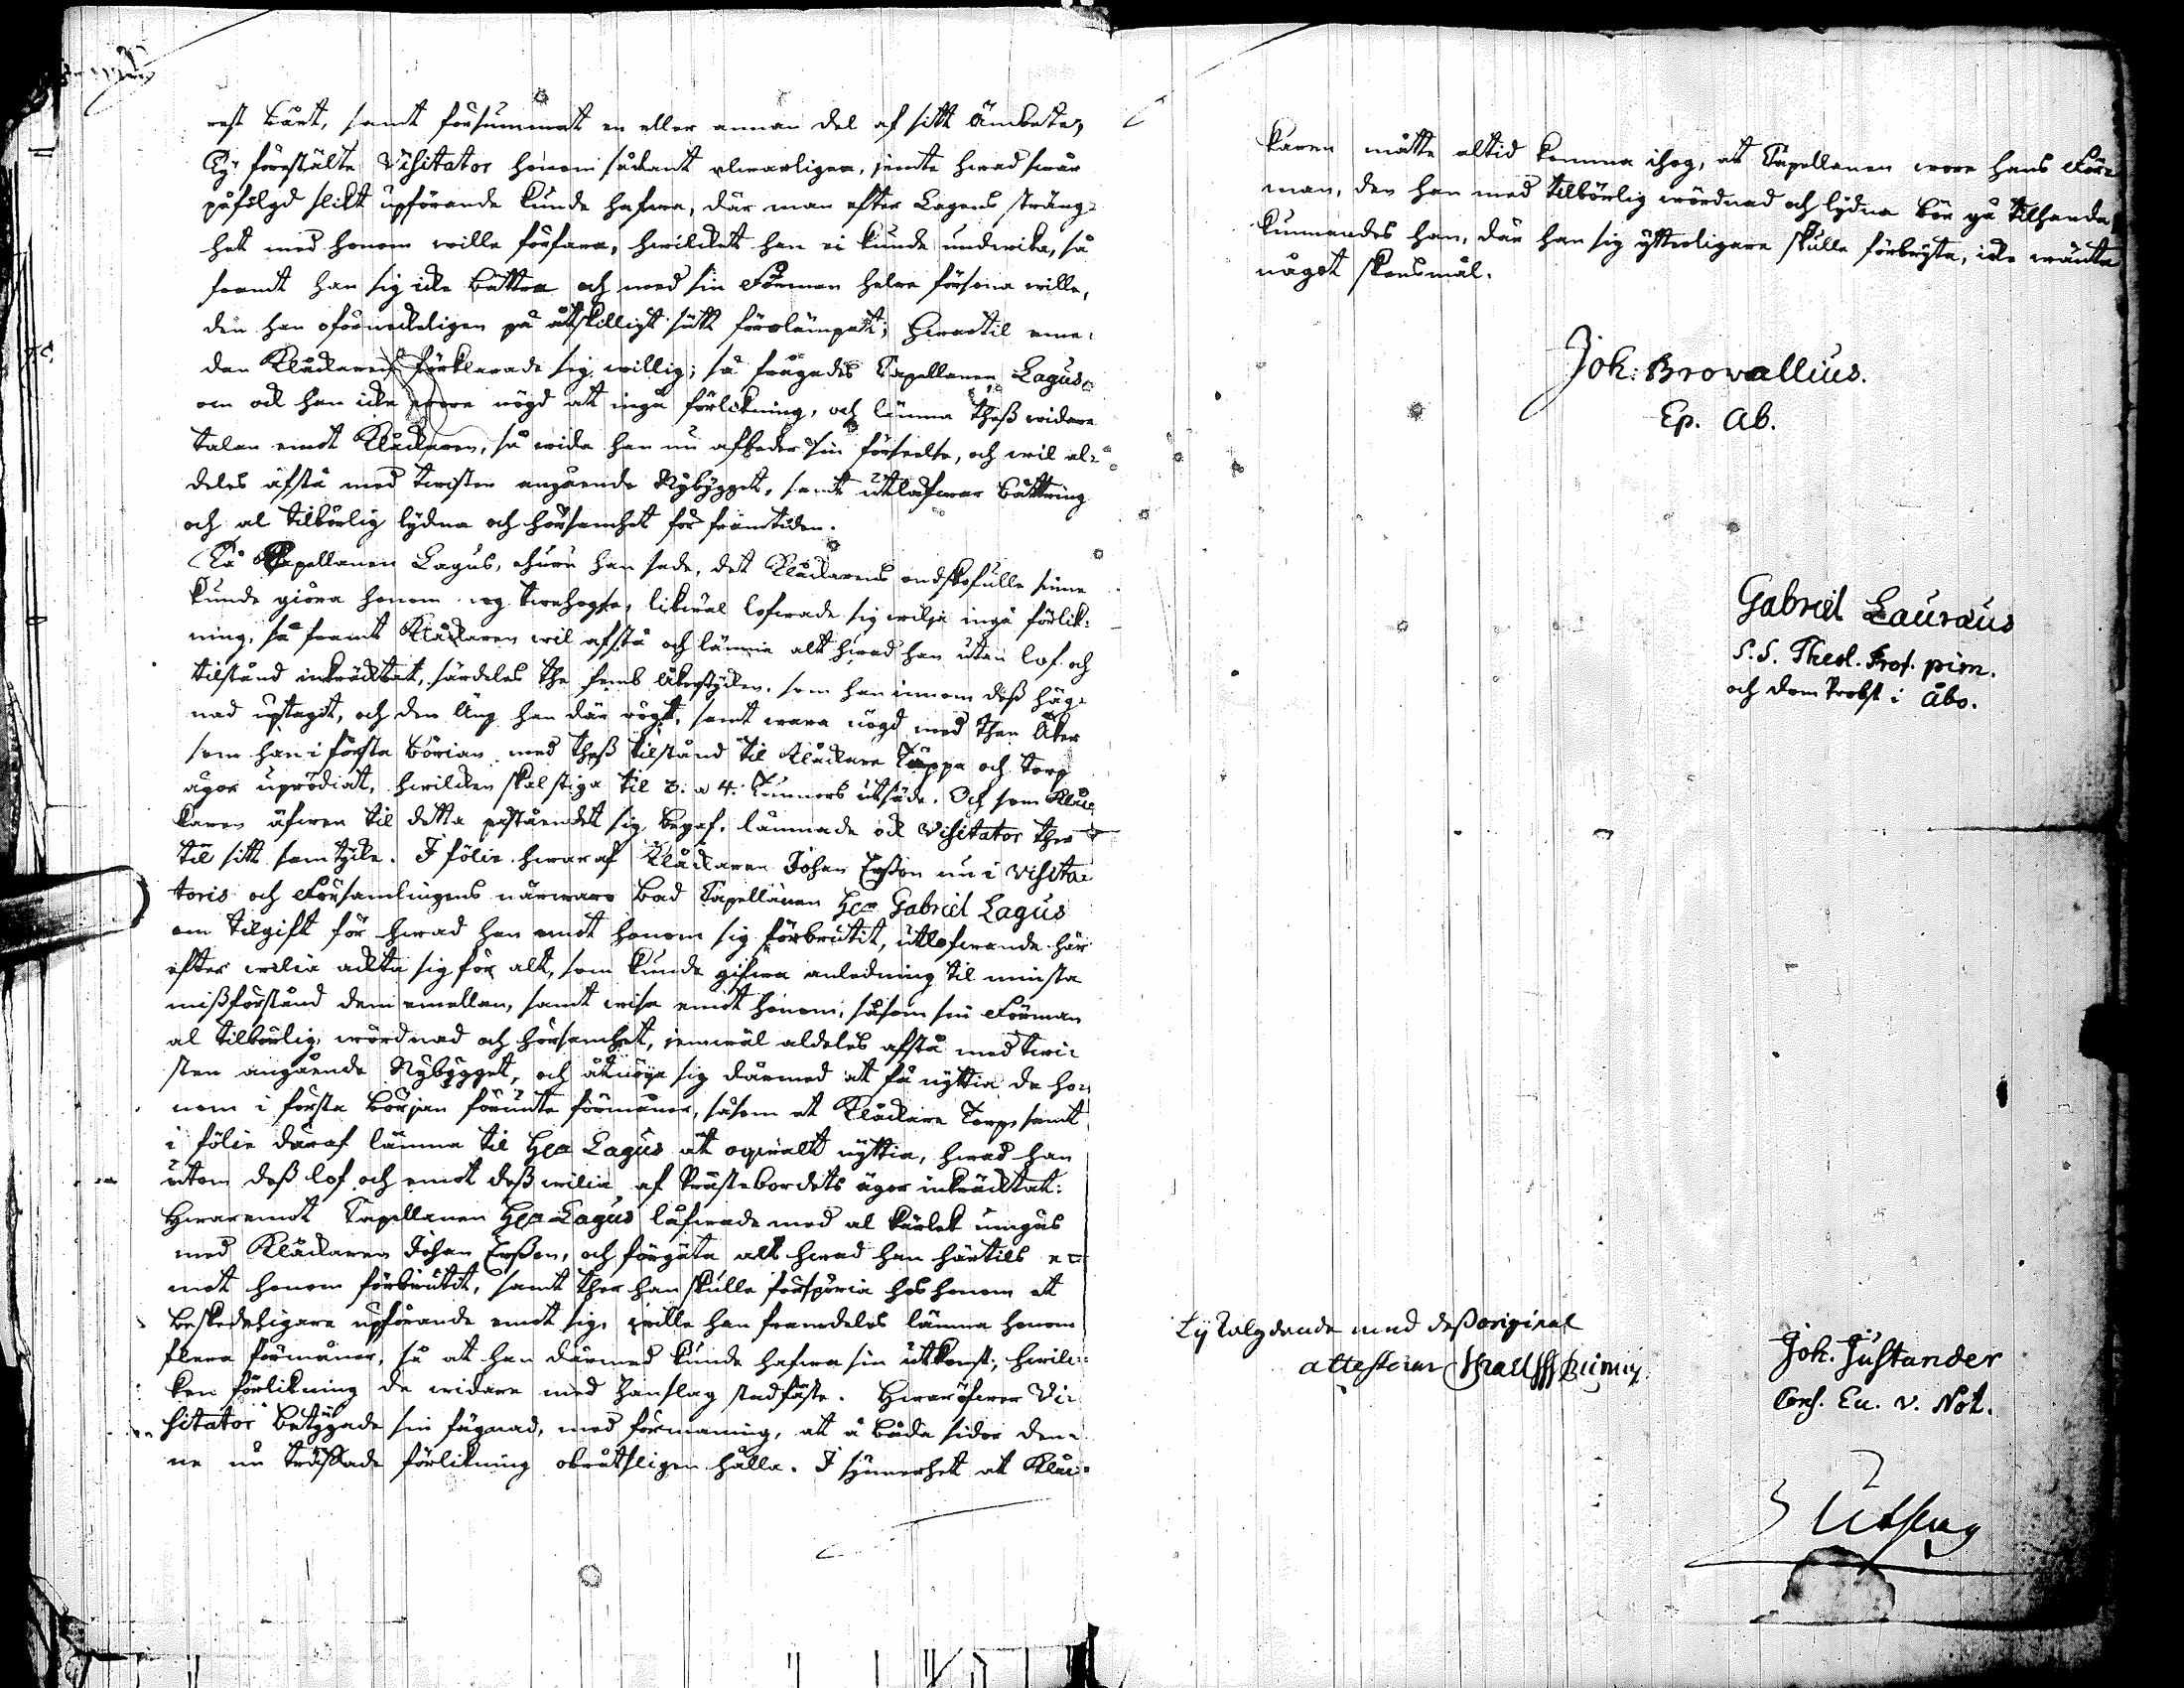 rest bårt, samt försummat en eller annan del af sitt Ämbete,
Ty förestälte Visitator honom sådant alwarligen, jemte hwad swår
påfölgd slikt upförande kunde hafwa, där man efter Lagens sträng-
het med honom wille förfara, hwilcket han ei kunde undwika, så
framt han sig icke bättra och med sin Förman helre försona wille,
den han oförneckeligen på åtskilligt sätt förolämpat; Hwartil eme-
dan Klåckaren förklarade sig willig; så frågades Capellanen Lagus,
om ock han icke wore nögd at ingå förlikning, och lämna theß widare
talan emot Klåckaren, så wida han nu afbeder sin förseelse, och wil al-
deles afstå med twisten angående Nybygget, samt utlåfwar bättring
och al tilbörlig lydna och hörsamhet för framtiden.
Tå Capellanen Lagus, ehuru han sade, det Klåckarens ondskofulle sinne
kunde giöra honom nog twehogse, likwäl lofwade sig wilja ingå förlik-
ning, så framt Klåckaren wil afstå och lämna alt hwad han utan lof och
tilstånd inkräcktat, särdeles the fem åkerstycken, som han innom deß häg-
nad uptagit, och den Äng han där rögt, samt wara nögd med then Åker
som han i första börian med theß tilstånd til Klåckare Täppa och torp
ägor uprödiat, hwilcken skal stiga til 3. a 4. Tunnors utsäde. Och som Klåc-
karen äfwen til detta påståendet sig begaf, lämnade ock Visitator ther
til sitt samtycke. I fölie hwaraf Klåckaren Johan Erßon nu i Visita-
toris och Församlingens närwaro bad Capellanen Her Gabriel Lagus
om tilgift för hwad han emot honom sig förbrutit, utlofwande här
efter wilia ackta sig för alt, som kunde gifwa anledning til minsta
mißförstånd dem emellan, samt wisa emot honom, såsom sin Förman
al tilbörlig wördnad och hörsamhet, jemwäl aldeles afstå med twi-
sten angående Nybygget, och åtnöya sig därmed at få nyttia de ho-
nom i första början förunte förmåner, såsom et Klåckare Torp, samt
i fölie däraf lämna til Her Lagus at oqwalt nyttia, hwad han
utom deß lof och emot deß wilia af Prästebordets ägor inkräcktat.
Hwaremot Capellanen Her Lagus låfwade med al kärlek umgås
med Klåckaren Johan Erßon, och förgäta alt hwad han härtils e-
mot honom förbrutit, samt ther han skulle förspöria hos honom et
beskedeligare upförande emot sig, wille han framdeles lämna honom
flera förmåner, så at han därmed kunde hafwa sin utkomst, hwilc-
ken förlikning de widare med Handslag stadfäste. Hwaröfwer Vi-
sitator betygade sin fägnad, med förmaning, at å båda sidor den-
ne nu träffade förlikning obråtsligen hålla. I synnerhet at Klåc-
karen måtte altid komma ihog, at Capellanen wore hans För-
man, den han med tilbörlig wördnad och lydna bör gå tilhanda,
kunnandes han, där han sig ytterligare skulle förbryta, icke wänta
något skonsmål.
Joh: Browallius.
Ep. Ab.
Gabriel Lauraus
S.S. Theol. Prof. prim.
och dom Probst i Åbo.
Lykalydande med deß original
attesterar
Joh. Justander
Cons. Ec. v. Not.